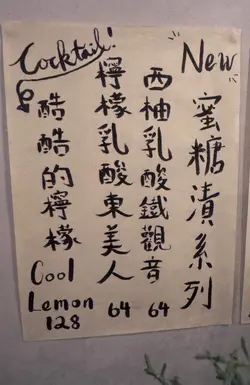 "New"
蜜糖漬系列
西柚乳酸鐵觀音
64
檸檬乳酸東美人
64
Cocktail!
酷酷的檸檬
Cool
Lemon
128